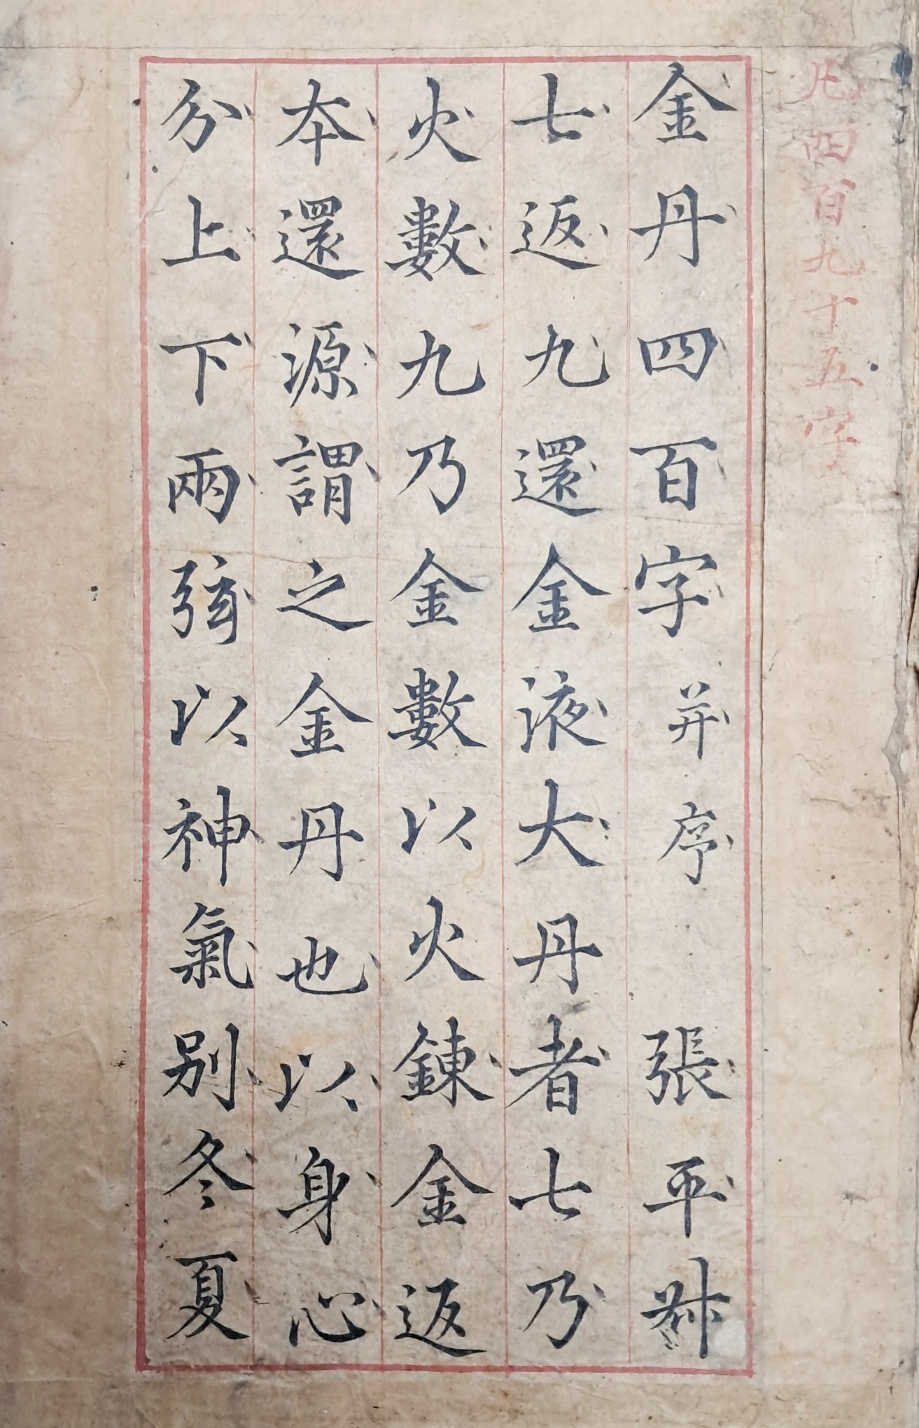 凡四百九十五字
金丹四百字并序 張平叔
七返九還金液大丹者七乃
火數九乃金數以火鍊金返
本還源謂之金丹也以身心
分上下兩弦以神氣別冬夏